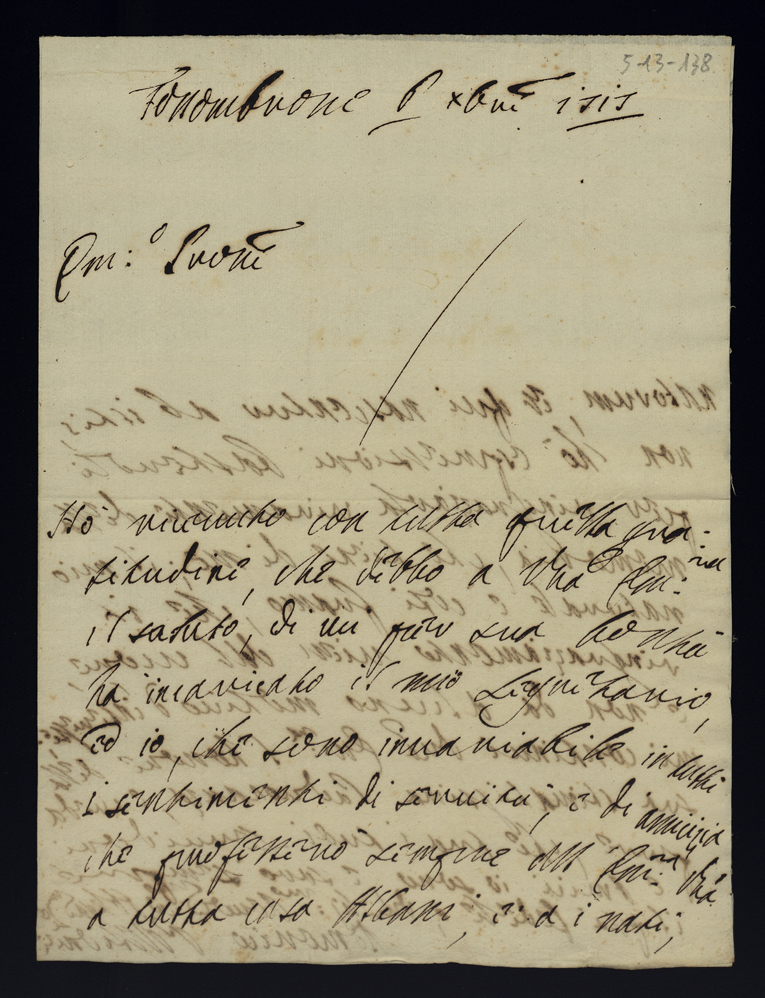 5-13-138
Fossombrone 6 xbre 1818
Em:o Prone
Ho ricevuto con tutta quella gra-
titudine, che debbo a Vra Em:za
il saluto, di cui per sua bontà
ha incaricato il mio Segretario,
ed io, che sono invariabile in tutti
i sentimenti di servitù, e di amicizia
che professerò sempre all' Em:za Vra
a tutta casa Albani, e a i nati,